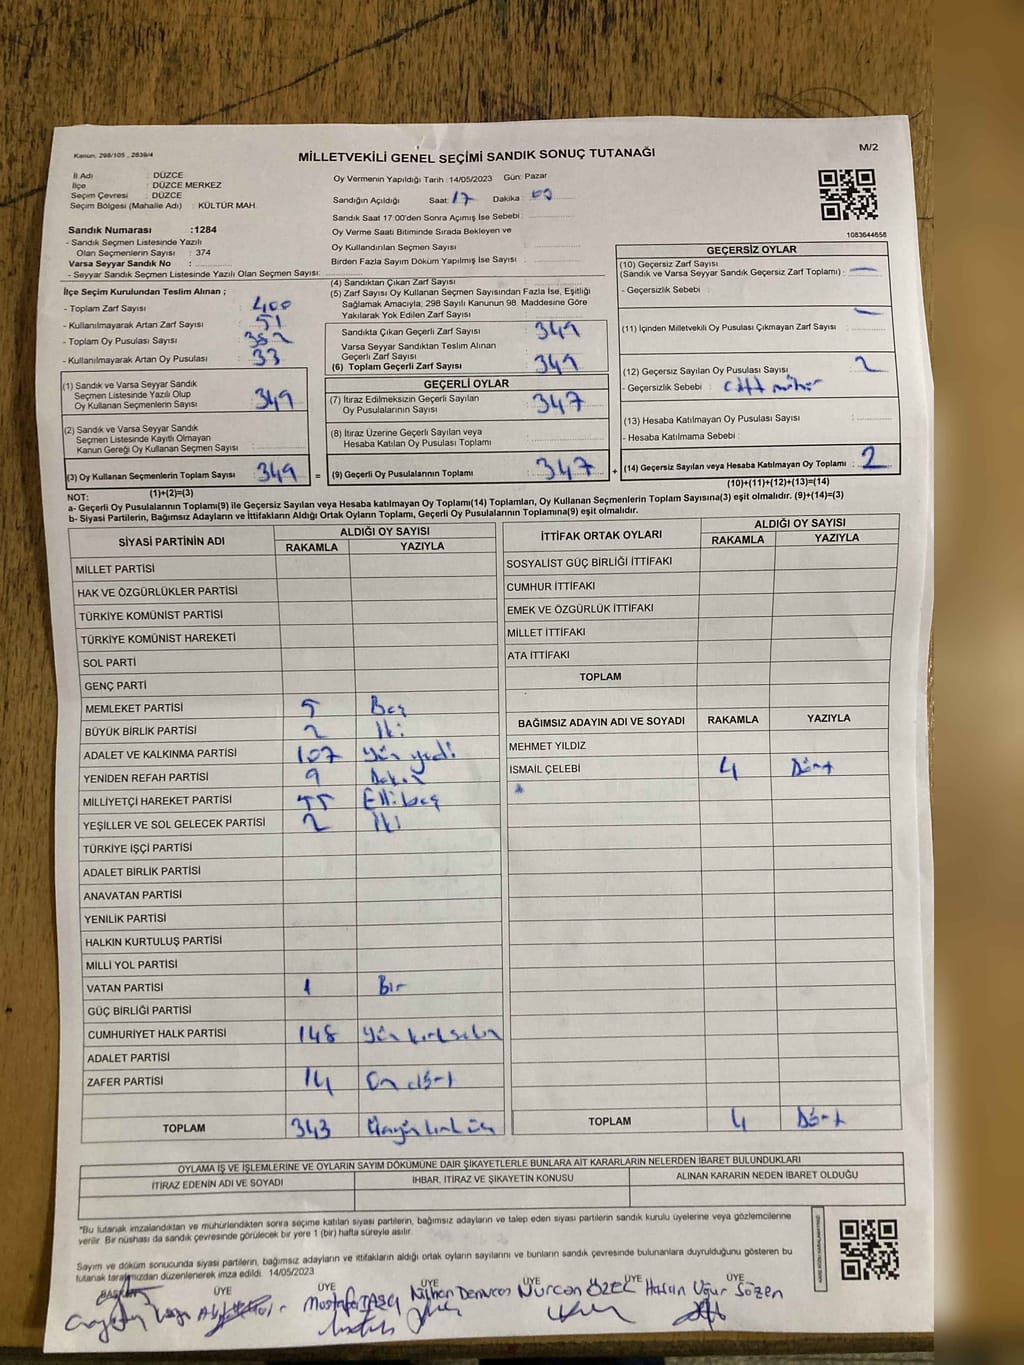 Kanun: 298/105 , 2839/4
M/2
MİLLETVEKİLİ GENEL SEÇİMİ SANDIK SONUÇ TUTANAĞI
İl Adı : DÜZCE
İlçe : DÜZCE MERKEZ
Seçim Çevresi : DÜZCE
Seçim Bölgesi (Mahalle Adı) : KÜLTÜR MAH.
Oy Vermenin Yapıldığı Tarih :14/05/2023 Gün: Pazar
Sandığın Açıldığı Saat: 17 Dakika :
Sandık Saat 17:00'den Sonra Açılmış İse Sebebi :
Oy Verme Saati Bitiminde Sırada Bekleyen ve
Oy Kullandırılan Seçmen Sayısı :
Birden Fazla Sayım Döküm Yapılmış İse Sayısı :
1083644658
Sandık Numarası :1284
- Sandık Seçmen Listesinde Yazılı
Olan Seçmenlerin Sayısı : 374
Varsa Seyyar Sandık No :
- Seyyar Sandık Seçmen Listesinde Yazılı Olan Seçmen Sayısı:
İlçe Seçim Kurulundan Teslim Alınan ;
- Toplam Zarf Sayısı : 400
- Kullanılmayarak Artan Zarf Sayısı : 51
- Toplam Oy Pusulası Sayısı : 382
- Kullanılmayarak Artan Oy Pusulası : 33
(1) Sandık ve Varsa Seyyar Sandık
Seçmen Listesinde Yazılı Olup
Oy Kullanan Seçmenlerin Sayısı : 349
(2) Sandık ve Varsa Seyyar Sandık
Seçmen Listesinde Kayıtlı Olmayan
Kanun Gereği Oy Kullanan Seçmen Sayısı :
(3) Oy Kullanan Seçmenlerin Toplam Sayısı : 349
(1)+(2)=(3)
(4) Sandıktan Çıkan Zarf Sayısı :
(5) Zarf Sayısı Oy Kullanan Seçmen Sayısından Fazla İse, Eşitliği
Sağlamak Amacıyla, 298 Sayılı Kanunun 98. Maddesine Göre
Yakılarak Yok Edilen Zarf Sayısı :
Sandıkta Çıkan Geçerli Zarf Sayısı : 349
Varsa Seyyar Sandıktan Teslim Alınan
Geçerli Zarf Sayısı :
(6) Toplam Geçerli Zarf Sayısı : 349
GEÇERLİ OYLAR
(7) İtiraz Edilmeksizin Geçerli Sayılan
Oy Pusulalarının Sayısı : 347
(8) İtiraz Üzerine Geçerli Sayılan veya
Hesaba Katılan Oy Pusulası Toplamı :
= (9) Geçerli Oy Pusulalarının Toplamı : 347
GEÇERSİZ OYLAR
(10) Geçersiz Zarf Sayısı
(Sandık ve Varsa Seyyar Sandık Geçersiz Zarf Toplamı) : —
- Geçersizlik Sebebi :
(11) İçinden Milletvekili Oy Pusulası Çıkmayan Zarf Sayısı : —
(12) Geçersiz Sayılan Oy Pusulası Sayısı : 2
- Geçersizlik Sebebi : Çift mühür
(13) Hesaba Katılmayan Oy Pusulası Sayısı :
- Hesaba Katılmama Sebebi :
+ (14) Geçersiz Sayılan veya Hesaba Katılmayan Oy Toplamı : 2
(10)+(11)+(12)+(13)=(14)
NOT:
a- Geçerli Oy Pusulalarının Toplamı(9) ile Geçersiz Sayılan veya Hesaba katılmayan Oy Toplamı(14) Toplamları, Oy Kullanan Seçmenlerin Toplam Sayısına(3) eşit olmalıdır. (9)+(14)=(3)
b- Siyasi Partilerin, Bağımsız Adayların ve İttifakların Aldığı Ortak Oyların Toplamı, Geçerli Oy Pusulalarının Toplamına(9) eşit olmalıdır.
SİYASİ PARTİNİN ADI ALDIĞI OY SAYISI
RAKAMLA YAZIYLA
MİLLET PARTİSİ
HAK VE ÖZGÜRLÜKLER PARTİSİ
TÜRKİYE KOMÜNİST PARTİSİ
TÜRKİYE KOMÜNİST HAREKETİ
SOL PARTİ
GENÇ PARTİ
MEMLEKET PARTİSİ 5 Beş
BÜYÜK BİRLİK PARTİSİ 2 İki
ADALET VE KALKINMA PARTİSİ 107 Yüz yedi
YENİDEN REFAH PARTİSİ 9 Dokuz
MİLLİYETÇİ HAREKET PARTİSİ 55 Elli beş
YEŞİLLER VE SOL GELECEK PARTİSİ 2 İki
TÜRKİYE İŞÇİ PARTİSİ
ADALET BİRLİK PARTİSİ
ANAVATAN PARTİSİ
YENİLİK PARTİSİ
HALKIN KURTULUŞ PARTİSİ
MİLLİ YOL PARTİSİ
VATAN PARTİSİ 1 Bir
GÜÇ BİRLİĞİ PARTİSİ
CUMHURİYET HALK PARTİSİ 148 Yüz kırk sekiz
ADALET PARTİSİ
ZAFER PARTİSİ 14 On dört
TOPLAM 343 Üçyüz kırk üç
İTTİFAK ORTAK OYLARI ALDIĞI OY SAYISI
RAKAMLA YAZIYLA
SOSYALİST GÜÇ BİRLİĞİ İTTİFAKI
CUMHUR İTTİFAKI
EMEK VE ÖZGÜRLÜK İTTİFAKI
MİLLET İTTİFAKI
ATA İTTİFAKI
TOPLAM
BAĞIMSIZ ADAYIN ADI VE SOYADI RAKAMLA YAZIYLA
MEHMET YILDIZ
İSMAİL ÇELEBİ 4 Dört
TOPLAM 4 Dört
OYLAMA İŞ VE İŞLEMLERİNE VE OYLARIN SAYIM DÖKÜMÜNE DAİR ŞİKAYETLERLE BUNLARA AİT KARARLARIN NELERDEN İBARET BULUNDUKLARI
İTİRAZ EDENİN ADI VE SOYADI İHBAR, İTİRAZ VE ŞİKAYETİN KONUSU ALINAN KARARIN NEDEN İBARET OLDUĞU
*Bu tutanak imzalandıktan ve mühürlendikten sonra seçime katılan siyasi partilerin, bağımsız adayların ve talep eden siyasi partilerin sandık kurulu üyelerine veya gözlemcilerine
verilir. Bir nüshası da sandık çevresinde görülecek bir yere 1 (bir) hafta süreyle asılır.
Sayım ve döküm sonucunda siyasi partilerin, bağımsız adayların ve ittifakların aldığı ortak oyların sayılarını ve bunların sandık çevresinde bulunanlara duyrulduğunu gösteren bu
tutanak tarafımızdan düzenlenerek imza edildi. 14/05/2023
BAŞKAN ÜYE ÜYE ÜYE ÜYE ÜYE ÜYE
Mustafa TAŞÇI Nurcan ÖZEL Hasan Uğur Sözen